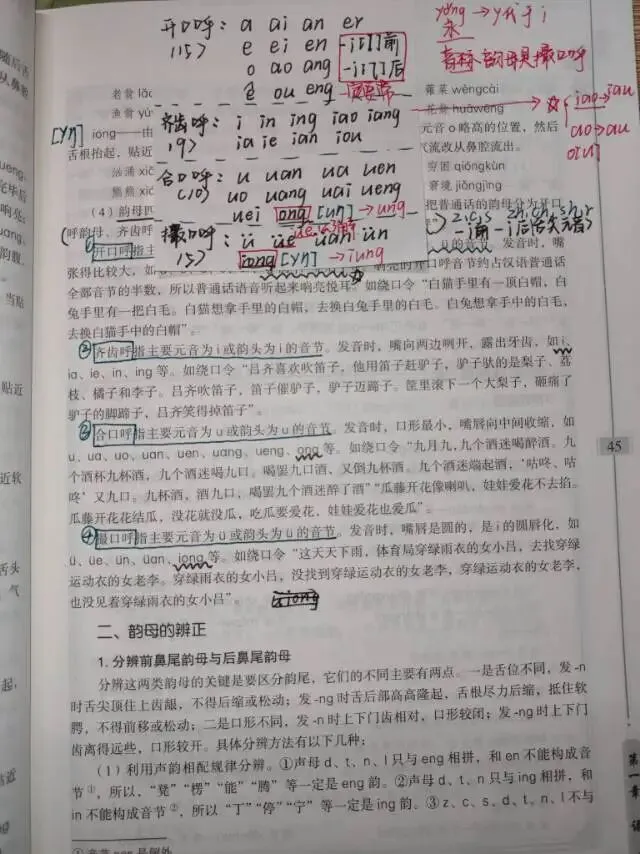 开口呼: a ai an er
(15) e ei en -i[ɿ]前
o ao ang -i[ʅ]后
ê ou eng
齐齿呼: i in ing iao iang
(9) ia ie ian iou
合口呼: u uan ua uen
(10) uo uang uai ueng
uei ong [uŋ] → ung
撮口呼: ü üe üan ün
(5) iong [yŋ] → iung
yǒng → y代于i
永
音标 韵母是撮口呼
iao→iau
ao→au
z,c,s zh,ch,sh,r
-i前 -i后
[yŋ]
老翁 lǎo
渔翁 yú
iong——由
舌根抬起，贴近
汹涌 xiō
熊熊 xió
(4) 韵母四
呼韵母、齐齿呼
蕹菜 wèngcài
花瓮 huāwèng
元音 o 略高的位置，然后
气流改从鼻腔流出。
穷困 qióngkùn
窘境 jiǒngjìng
把普通话的韵母分为开口
①开口呼指主
的音节。发音时，嘴
张得比较大，如
响亮的开口呼音节约占汉语普通话
全部音节的半数，所以普通话语音听起来响亮悦耳。如绕口令“白猫手里有一顶白帽，白
兔手里有一把白毛。白猫想拿手里的白帽，去换白兔手里的白毛。白兔想拿手中的白毛，
去换白猫手中的白帽”。
②齐齿呼指主要元音为 i 或韵头为 i 的音节。发音时，嘴向两边咧开，露出牙齿，如 i、
ia、ie、in、ing 等。如绕口令“吕齐喜欢吹笛子，他用笛子赶驴子，驴子驮的是梨子、荔
枝、橘子和李子。吕齐吹笛子，笛子催驴子，驴子迈蹄子。筐里滚下一个大梨子，砸痛了
驴子的脚蹄子，吕齐笑得掉笛子”。
③合口呼指主要元音为 u 或韵头为 u 的音节。发音时，口形最小，嘴唇向中间收缩，如
u、ua、uo、uan、uen、uang、ueng、ong 等。如绕口令“九月九，九个酒迷喝醉酒。九
个酒杯九杯酒，九个酒迷喝九口。喝罢九口酒，又倒九杯酒。九个酒迷端起酒，‘咕咚、咕
咚’又九口。九杯酒，酒九口，喝罢九个酒迷醉了酒”“瓜藤开花像喇叭，娃娃爱花不去掐。
瓜藤开花花结瓜，没花就没瓜，吃瓜要爱花，娃娃爱花也爱瓜”。
④撮口呼指主要元音为 ü 或韵头为 ü 的音节。发音时，嘴唇是圆的，是 i 的圆唇化，如
ü、üe、ün、üan、iong 等。如绕口令“这天天下雨，体育局穿绿雨衣的女小吕，去找穿绿
运动衣的女老李。穿绿雨衣的女小吕，没找到穿绿运动衣的女老李，穿绿运动衣的女老李，
也没见着穿绿雨衣的女小吕”。
二、韵母的辨正
1. 分辨前鼻尾韵母与后鼻尾韵母
分辨这两类韵母的关键是要区分韵尾，它们的不同主要有两点。一是舌位不同，发 -n
时舌尖顶住上齿龈，不得后缩或松动；发 -ng 时舌后部高高隆起，舌根尽力后缩，抵住软
腭，不得前移或松动；二是口形不同，发 -n 时上下门齿相对，口形较闭；发 -ng 时上下门
齿离得远些，口形较开。具体分辨方法有以下几种：
(1) 利用声韵相配规律分辨。①声母 d、t、n、l 只与 eng 相拼，和 en 不能构成音
节①，所以，“凳”“楞”“能”“腾”等一定是 eng 韵。②声母 d、t、n 只与 ing 相拼，和
in 不能构成音节②，所以“丁”“停”“宁”等一定是 ing 韵。③ z、c、s、d、t、n、l 不与
45
第一章